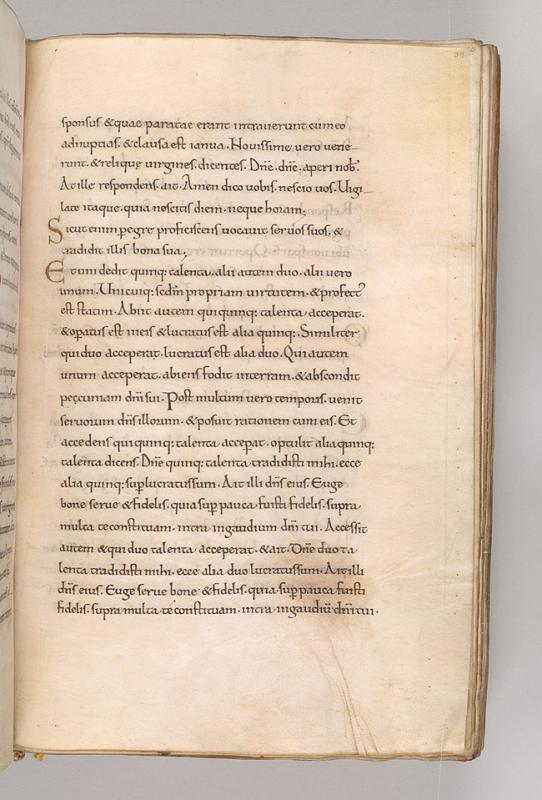 sponsus & quae paratae erant intraverunt cum eo
ad nuptias. & clausa est ianua. Novissime vero vene-
runt. & relique virgines. dicentes. Dn̄e. dn̄e. aperi nob̄.
At ille respondens. ait. Amen dico vobis. nescio vos. Vigi-
late itaque. quia nescitis diem. neque horam;
Sicut enim p̲egre proficiscens vocavit servos suos. &
tradidit illis bona sua.
Et uni dedit quinq; talenta. alii autem duo. alii vero
unum. Unicuiq; sedm̄ propriam virtutem. & profect'
est statim. Abiit autem qui quinq; talenta acceperat.
& op̲atus est in eis & lucratus est alia quinq;. Similiter
qui duo acceperat. lucratus est alia duo. Qui autem
unum acceperat. abiens fodit in terram. & abscondit
peccuniam dn̄i sui. Post multum vero temporis. venit
servorum dn̄s illorum. & posuit rationem cum eis. Et
accedens qui quinq; talenta accep̲at. optulit alia quinq;
talenta dicens. Dn̄e quinq; talenta tradidisti mihi. ecce
alia quinq; sup̲lucratus sum. Ait illi dn̄s eius. Euge
bone serve & fidelis. quia sup̲ pauca fuisti fidelis. supra
multa te constituam. intra in gaudium dn̄i tui. Accessit
autem & qui duo talenta acceperat. & ait. Dn̄e duo ta
lenta tradidisti mihi. ecce alia duo lucratus sum. Ait illi
dn̄s eius. Euge serve bone & fidelis. quia sup̲ pauca fuisti
fidelis. supra multa te constituam. intra in gaudiū dn̄i tui.